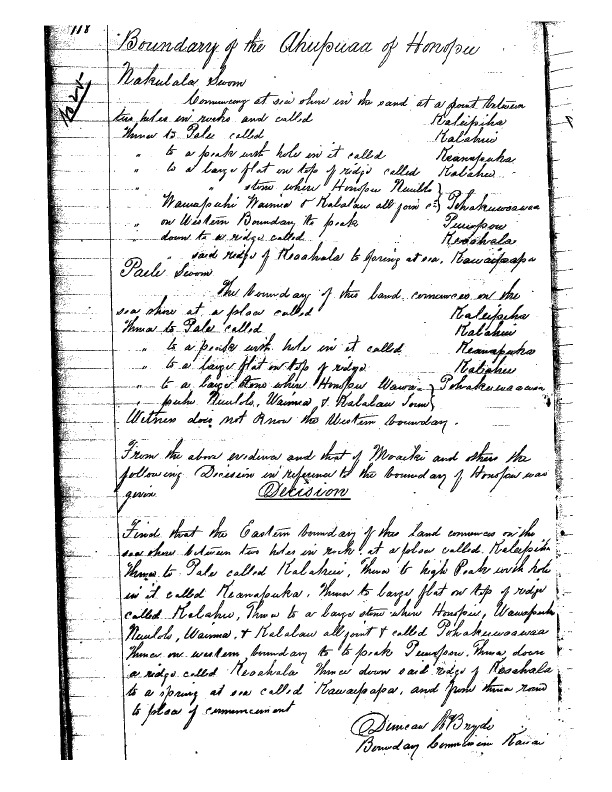 118
Boundary of the Ahupuaa of Honopu
Nakulala Sworn
Comencing at sea shore in the sand at a point between
two holes in rocks and called Kaleipiha
Thence to Pale called Kalahui
" to a peak with hole in it called Keanapuka
" to a large flat on top of ridge called Kalahu
" " stone where Honopu Nuulolo
Wawapuhi Waimea & Kalalau all join Pohakuwaawaa
" on Western Boundary to peak
" down to a ridge called Keoahala
" said ridge of Keoahala to spring at sea, Kawaipapa
Paele Sworn
The boundary of this land comences on the
sea shore at a place called Kaleipiha
Thence to Pale called Kalahui
" to a peak with hole in it called Keanapuka
" to a large flat on top of ridge Kalahu
" to a large stone where Honopu Wawa- Pohakuwaawaa
" puhi Nuulolo, Waimea & Kalalau Join
Witness does not know the Western boundary.
From the above evidence and that of and others the
following Decision in reference to the boundary of Honopu was
given Decision
Find that the Eastern boundary of this land comences on the
sea shore between two holes in rock at a place called Kaleipiha
Thence to Pale called Kalahui, Thence to high Peak with hole
in it called Keanapuka, Thence to large flat on top of ridge
called Kalahu, Thence to a large stone where Honopu, Wawapuhi
Nuulolo, Waimea, & Kalalau all joint & called Pohakuwaawaa
Thence on western boundary to to peak Thence down
a ridge called Keoahala Thence down said ridge of Keoahala
to a spring at sea called Kawaipapa, and from thence round
to place of comencement
Duncan McBryde
Boundary Comission Kauai